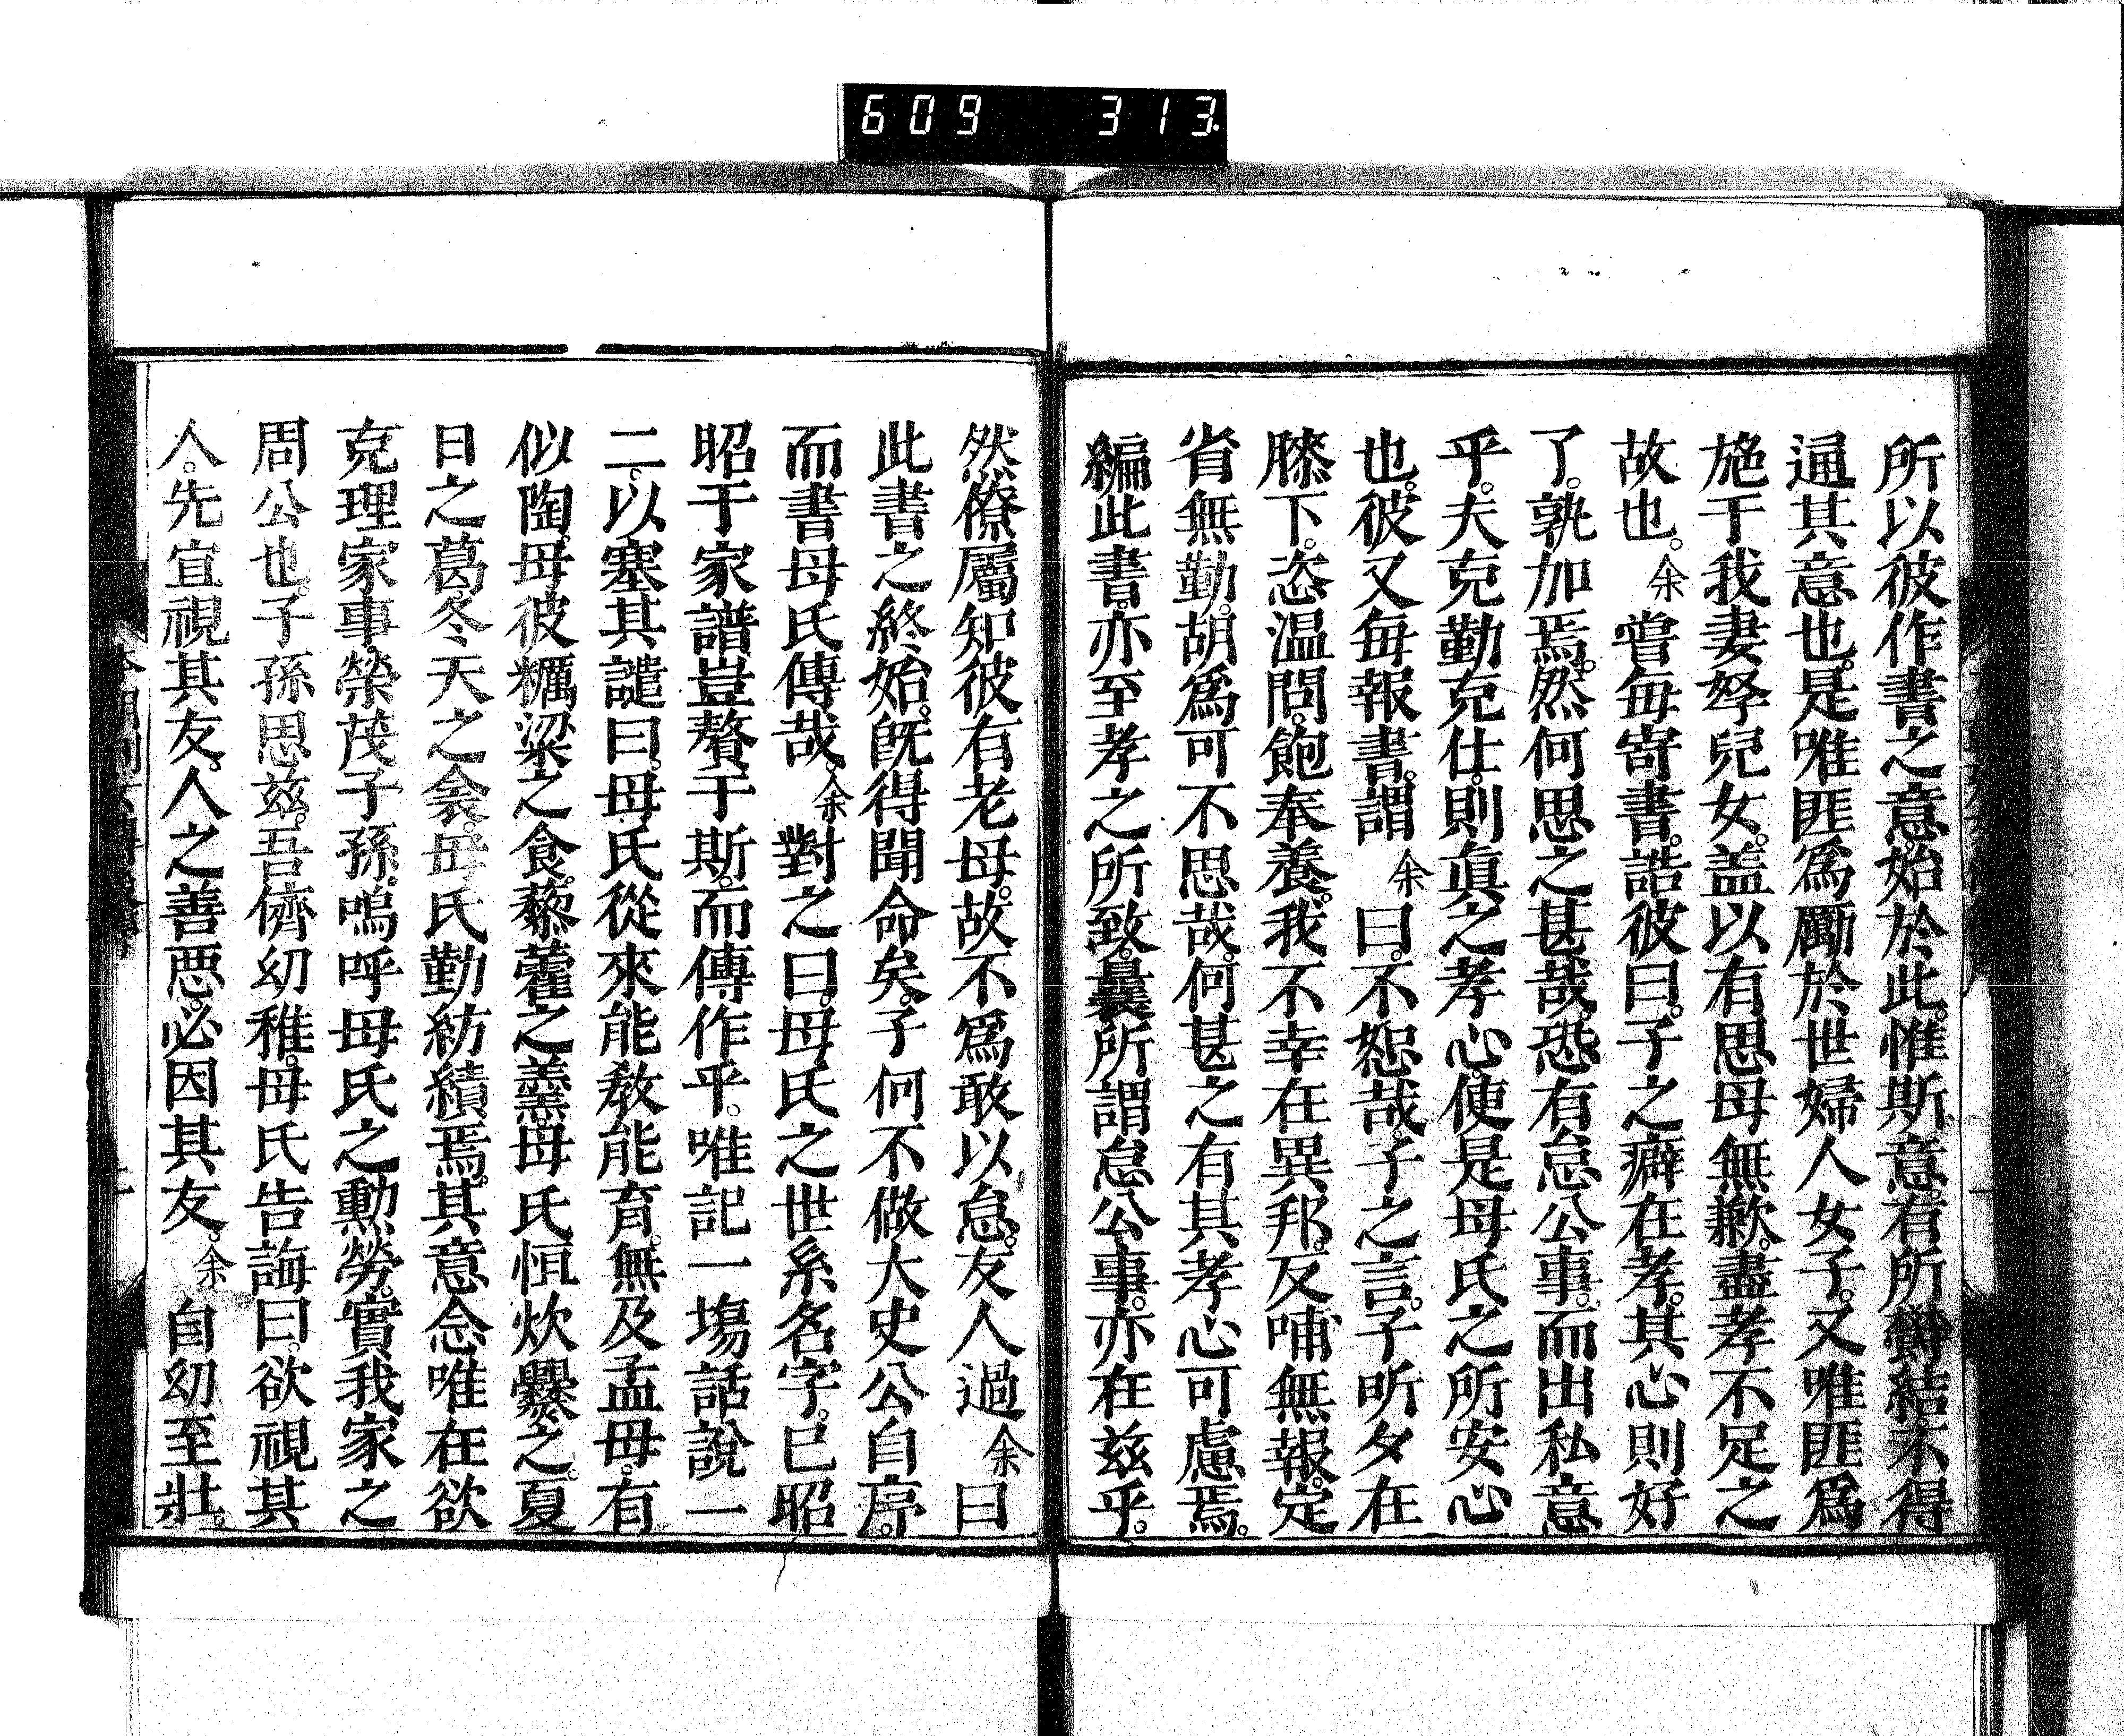 609 313.
所以彼作書之意。始於此。惟斯意。有所欝結不得
通其意也。是唯匪爲勵於世婦人女子。又唯匪爲
施于我妻孥兒女。盖以有思母無歉。盡孝不足之
故也。余嘗毎寄書。誥彼曰。子之癖在孝。其心則好
了。孰加焉。然何思之甚哉。恐有怠公事。而出私意
乎。夫克勤克仕。則眞之孝心。使是母氏之所安心
也。彼又毎報書。謂余曰。不恕哉。子之言。子昕夕在
膝下。恣温問。飽奉養。我不幸在異邦。反哺無報。定
省無勤。胡爲可不思哉。何甚之有其孝心可慮焉。
編此書。亦至孝之所致。曩所謂怠公事。亦在兹乎。
然僚屬知彼有老母。故不爲敢以怠。友人過余曰
此書之終始。既得聞命矣。子何不做大史公自序。
而書母氏傳哉。余對之曰。母氏之世系名字。已昭
昭于家譜。豈贅于斯。而傳作乎。唯記一塲話說一
二。以塞其譴曰。母氏從來能敎能育。無及孟母。有
似陶母。彼糲粱之食。藜藿之羹。母氏恒炊爨之。夏
日之葛。冬天之衾。母氏勤紡績焉。其意念唯在欲
克理家事。榮茂子孫。嗚呼母氏之勳勞。實我家之
周公也。子孫思兹。吾儕幼稚。母氏告誨曰。欲視其
人。先宜視其友。人之善惡。必因其友。余自幼至壯。